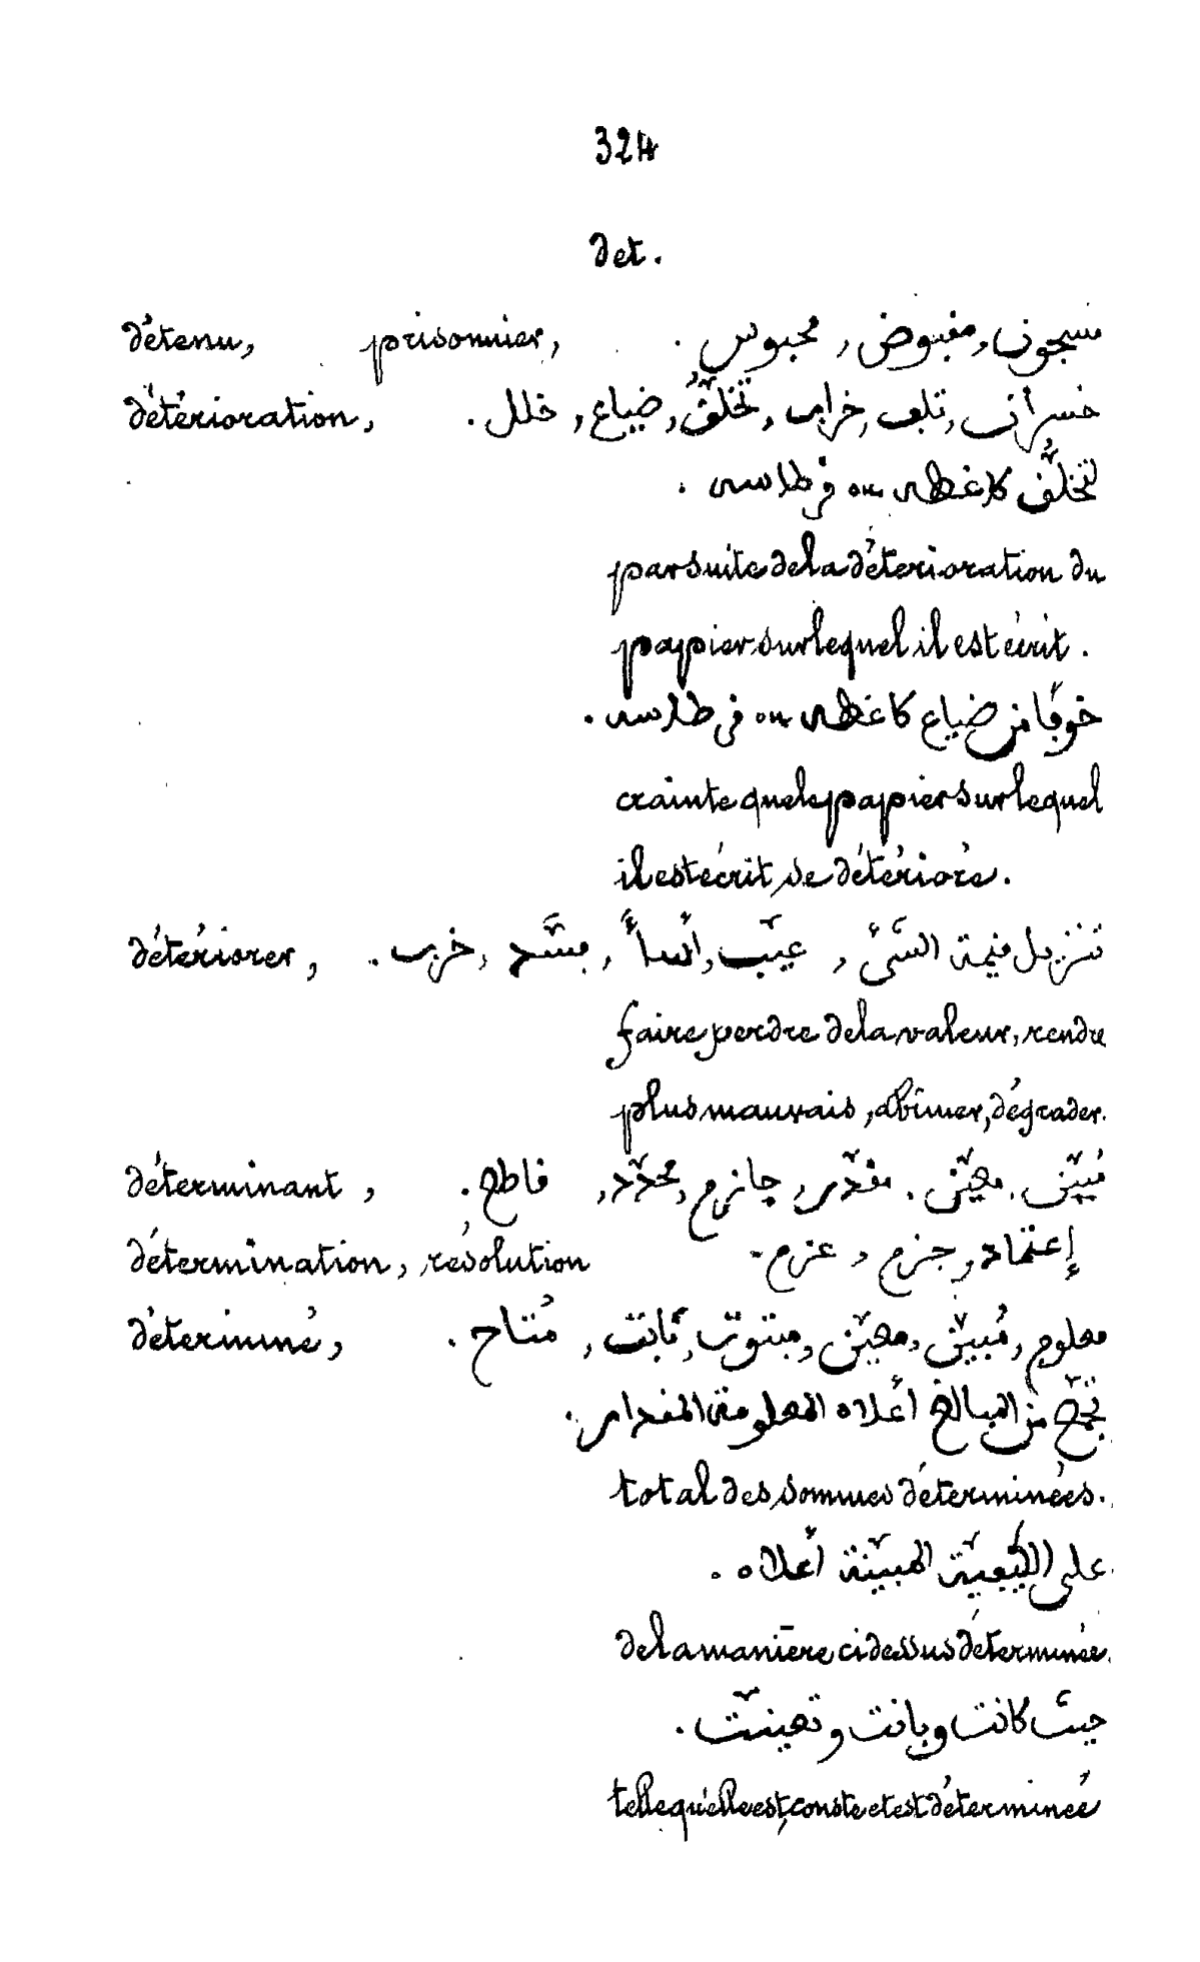 324
det.
détenu, prisonnier, مسجون, مقبوض, محبوس.
détérioration, خسران, تلف, خراب, تخلّق, ضياع, خلل.
لتخلّق كاغطه ou قرطاسه.
par suite de la déterioration du
papier sur lequel il est écrit.
خوفًا من ضياع كاغطه ou قرطاسه.
crainte que le papier sur lequel
il est écrit se détériore.
détériorer, تنزيل قيمة الشّىء, عيّب, أسأ, فسّد, خرب.
faire perdre de la valeur, rendre
plus mauvais, abîmer, dégrader.
déterminant, مُبيّن, معيّن, مقدّر, جازم, محدّد, قاطع.
détermination, résolution إعتماد, جزم, عزم.
déterminé, معلوم, مُبيّن, معيّن, مبتوت, ثابت, مُتاح.
تجمّع من المبالغ أعلاه المعلومة المقدار.
total des sommes déterminées.
على الكيفيّة المبيّنة أعلاه.
de la manière ci dessus déterminée.
حيث كانت وبانت وتعيّنت.
telle qu'elle est, conste et est déterminée